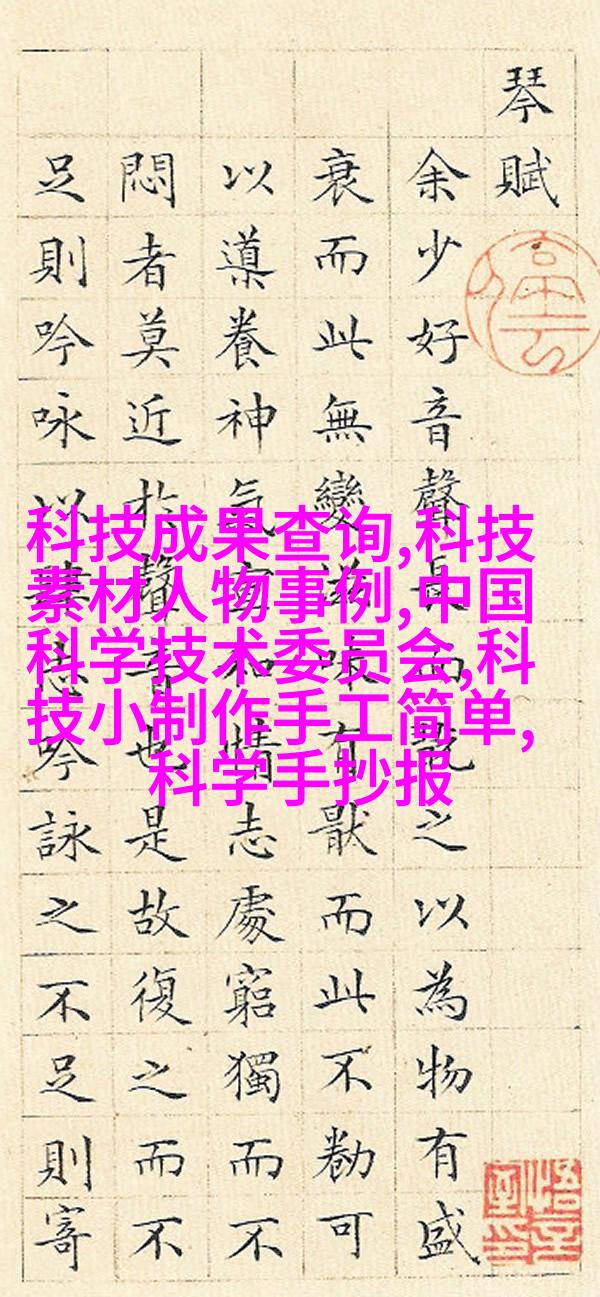 琴賦
余少好音聲長而翫之以為物有盛
衰而此無變滋味有猒而此不勌可
以導養神氣宣和情志處窮獨而不
悶者莫近於聲音也是故復之而不
足則吟咏以肆志吟詠之不足則寄
科技成果查询,科技
素材人物事例,中国
科学技术委员会,科
技小制作手工简单,
科学手抄报